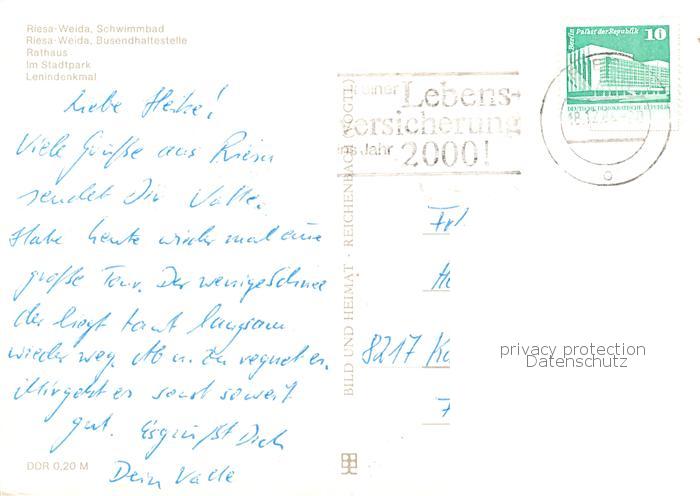 Riesa-Weida, Schwimmbad
Riesa-Weida, Busendhaltestelle
Rathaus
Im Stadtpark
Lenindenkmal
Liebe Heike!
Viele Grüße aus Riesa
sendet Dir Valle.
Habe heute wieder mal eine
große Tour. Der wenige Schnee
der liegt taut langsam
wieder weg. Ab u. zu regnet es.
Mir geht es sonst soweit
gut. Es grüßt Dich
Dein Valle
DDR 0,20 M
BILD UND HEIMAT · REICHENBACH (VOGTL)
einer Lebens-
versicherung
ins Jahr 2000!
Berlin Palast der Republik 10
DEUTSCHE DEMOKRATISCHE REPUBLIK
18.12.
Frl.
8217 Ko
privacy protection
Datenschutz